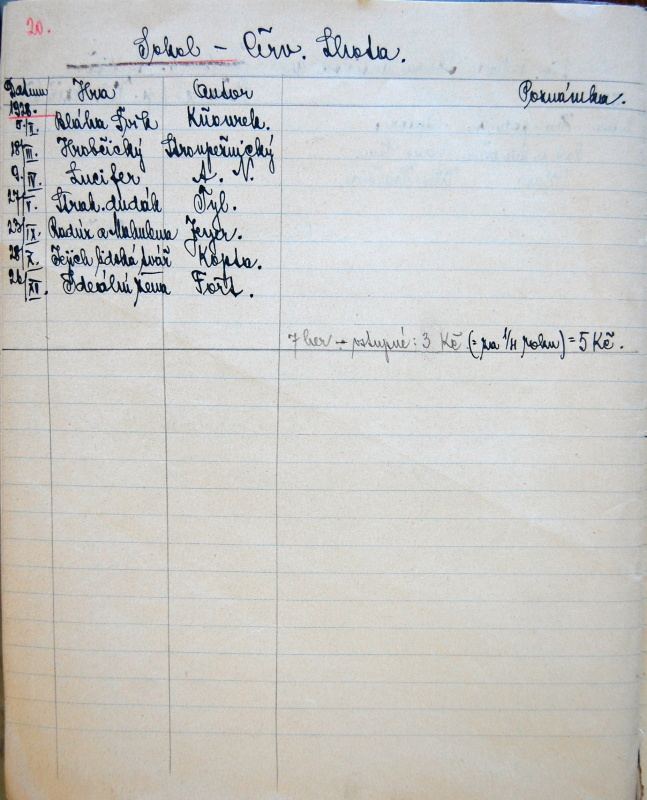 20.
Sokol – Červ. Lhota.
Datum Hra Autor Poznámka.
1928.
5/II. Bláha
18/III. Hrobčický Stroupežnický
9/IV. Lucifer A. N.
27/V. Strak. dudák Tyl.
23/IX. Radúz a Mahulena Zeyer.
28/X. Jejich lidská tvář Kopta.
26/XII. Ideální žena Fořt.
7 her – vstupné: 3 Kč (= za 1/4 roku) = 5 Kč.